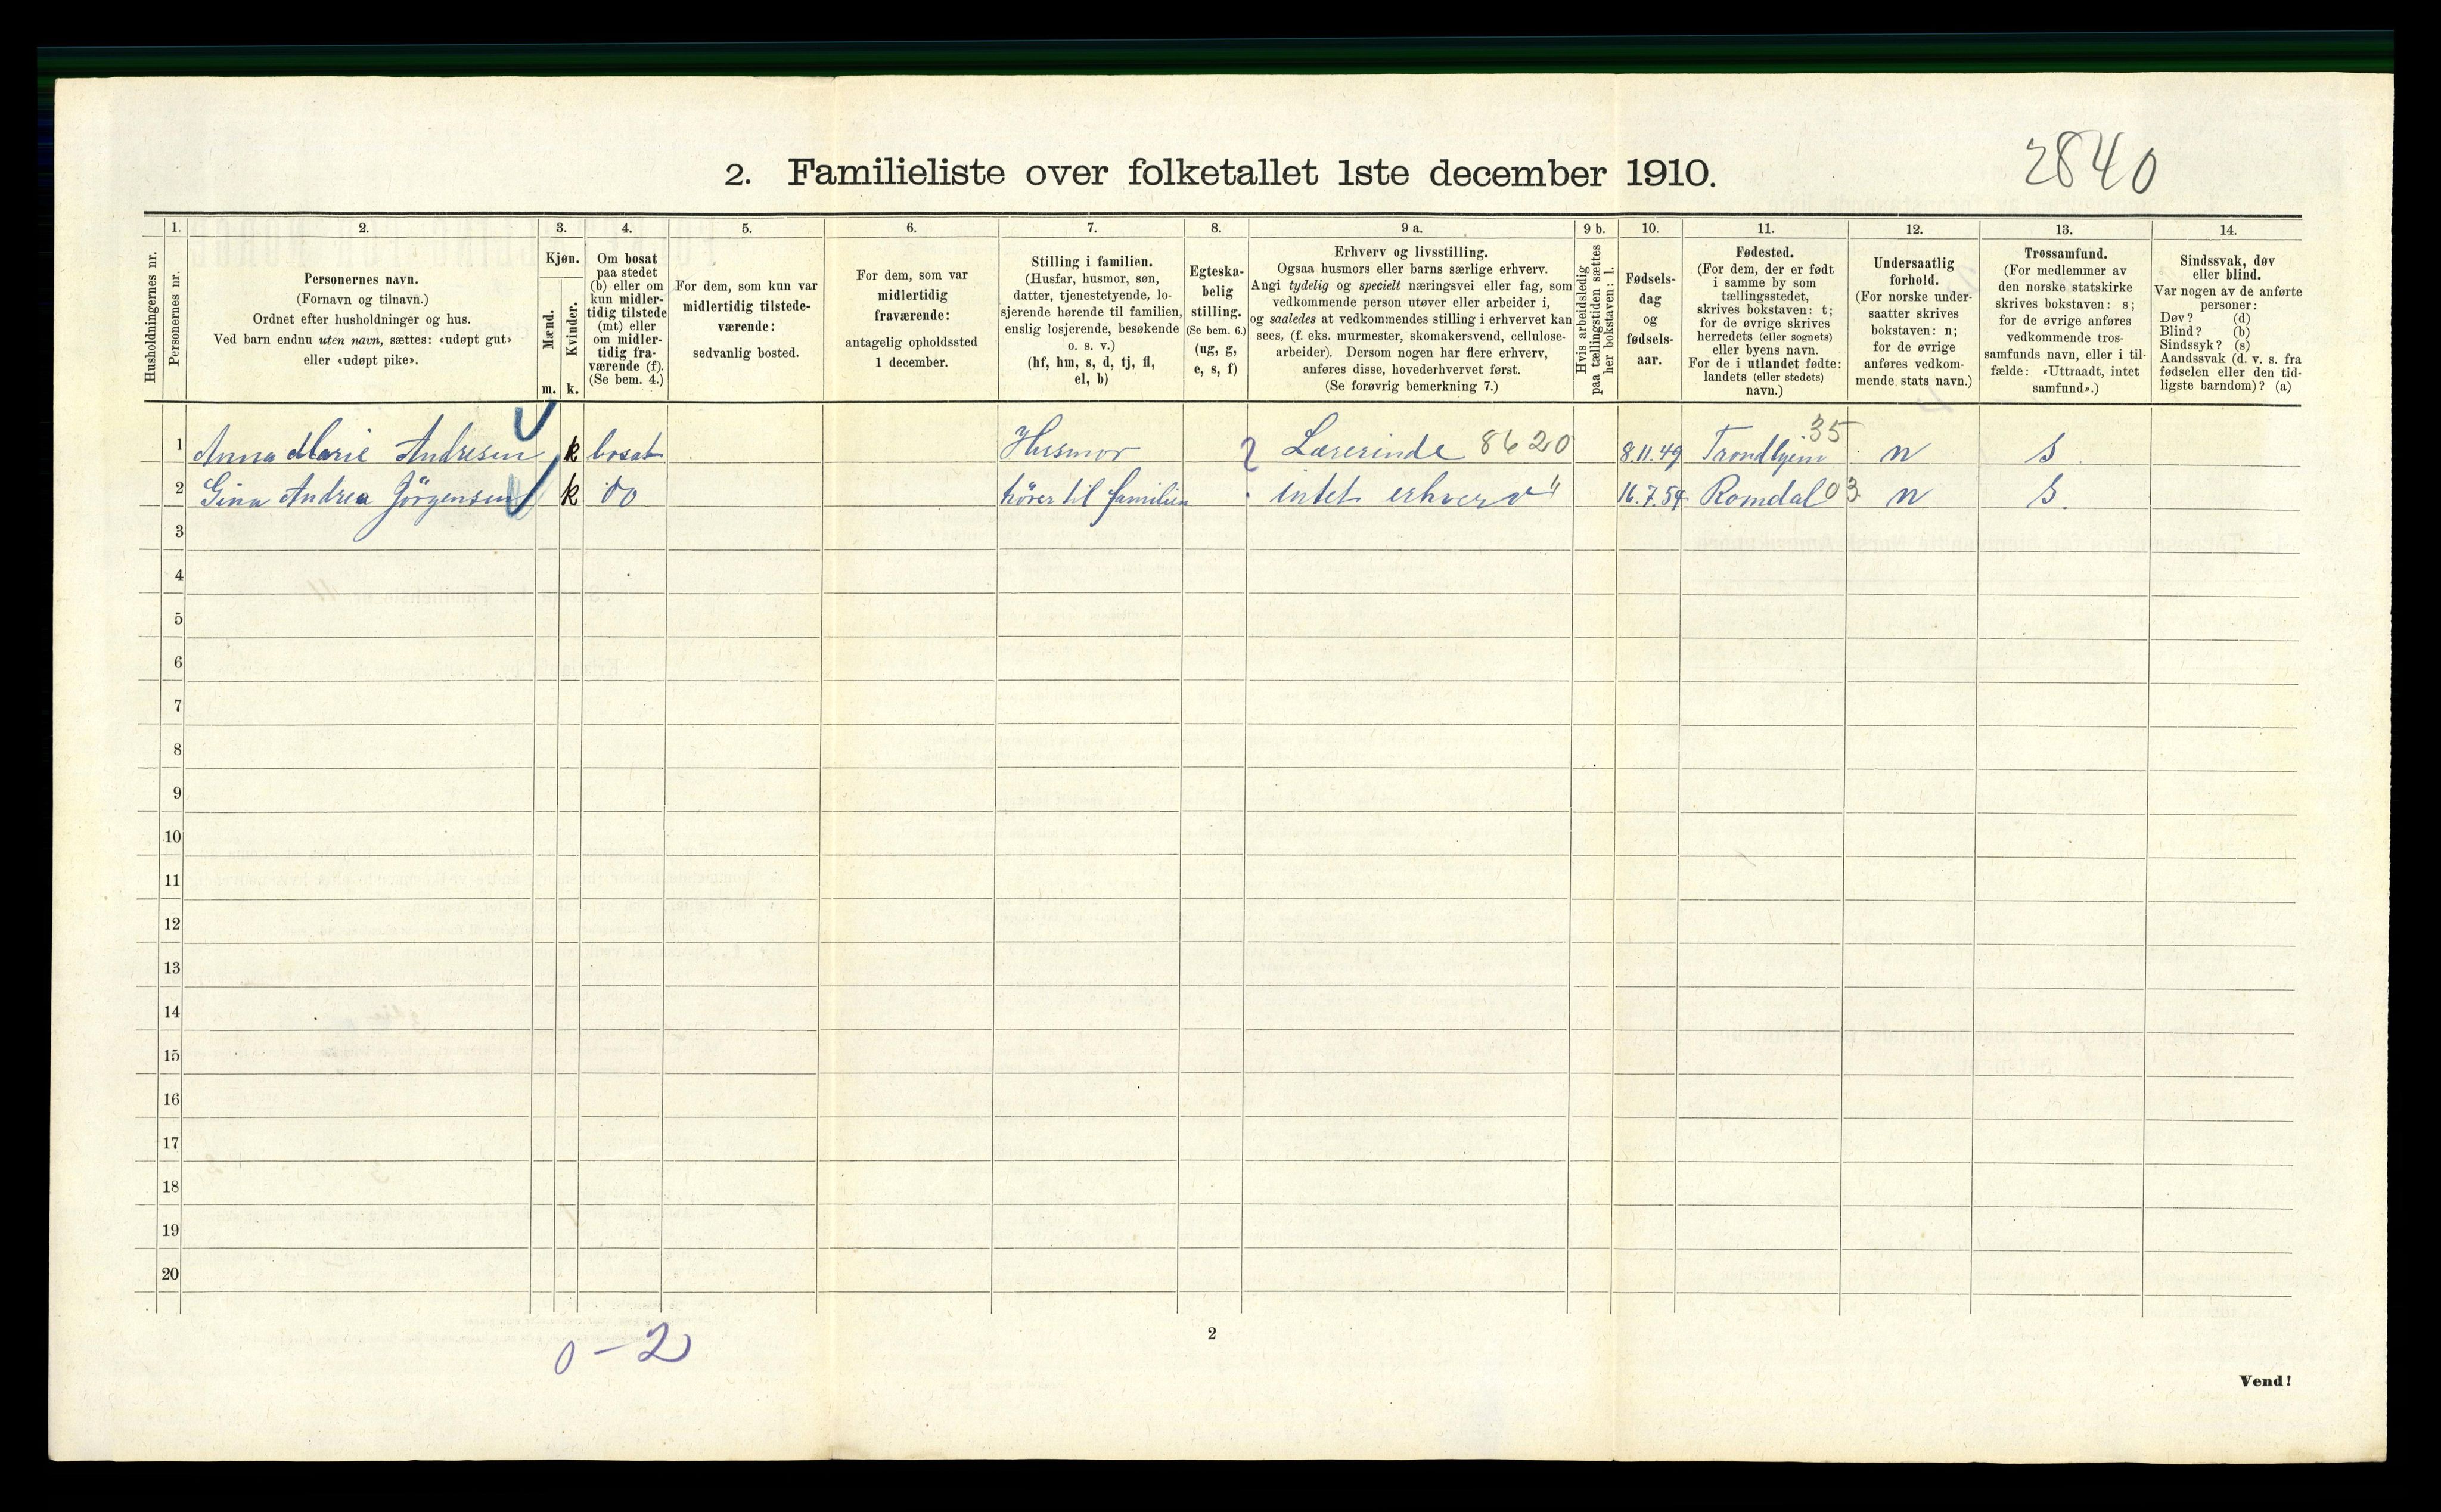 2840
2. Familieliste over folketallet 1ste december 1910.
Husholdningernes nr.
1.
Personernes nr.
2.
Personernes navn.
(Fornavn og tilnavn.)
Ordnet efter husholdninger og hus.
Ved barn endnu uten navn, sættes: «udøpt gut»
eller «udøpt pike».
3.
Kjøn.
Mænd.
m.
Kvinder.
k.
4.
Om bosat
paa stedet
(b) eller om
kun midler-
tidig tilstede
(mt) eller
om midler-
tidig fra-
værende (f).
(Se bem. 4.)
5.
For dem, som kun var
midlertidig tilstede-
værende:
sedvanlig bosted.
6.
For dem, som var
midlertidig
fraværende:
antagelig opholdssted
1 december.
7.
Stilling i familien.
(Husfar, husmor, søn,
datter, tjenestetyende, lo-
sjerende hørende til familien,
enslig losjerende, besøkende
o. s. v.)
(hf, hm, s, d, tj, fl,
el, b)
8.
Egteska-
belig
stilling.
(Se bem. 6.)
(ug, g,
e, s, f)
9 a.
Erhverv og livsstilling.
Ogsaa husmors eller barns særlige erhverv.
Angi tydelig og specielt næringsvei eller fag, som
vedkommende person utøver eller arbeider i,
og saaledes at vedkommendes stilling i erhvervet kan
sees, (f. eks. murmester, skomakersvend, cellulose-
arbeider). Dersom nogen har flere erhverv,
anføres disse, hovederhvervet først.
(Se forøvrig bemerkning 7.)
9 b.
Hvis arbeidsledig
paa tællingstiden sættes
her bokstaven: l.
10.
Fødsels-
dag
og
fødsels-
aar.
11.
Fødested.
(For dem, der er født
i samme by som
tællingsstedet,
skrives bokstaven: t;
for de øvrige skrives
herredets (eller sognets)
eller byens navn.
For de i utlandet fødte:
landets (eller stedets)
navn.)
12.
Undersaatlig
forhold.
(For norske under-
saatter skrives
bokstaven: n;
for de øvrige
anføres vedkom-
mende stats navn.)
13.
Trossamfund.
(For medlemmer av
den norske statskirke
skrives bokstaven: s;
for de øvrige anføres
vedkommende tros-
samfunds navn, eller i til-
fælde: «Uttraadt, intet
samfund».)
14.
Sindssvak, døv
eller blind.
Var nogen av de anførte
personer:
Døv? (d)
Blind? (b)
Sindssyk? (s)
Aandssvak (d. v. s. fra
fødselen eller den tid-
ligste barndom)? (a)
1 Anna Marie Andresen k bosat Husmor Lærerinde 8620 8.11.49 Trondhjem 35 n s
2 Gina Andrea Jörgensen k do hører til familien intet erhverv " 16.7.54 Romdal 03 n s
3
4
5
6
7
8
9
10
11
12
13
14
15
16
17
18
19
20
0 - 2
2
Vend!